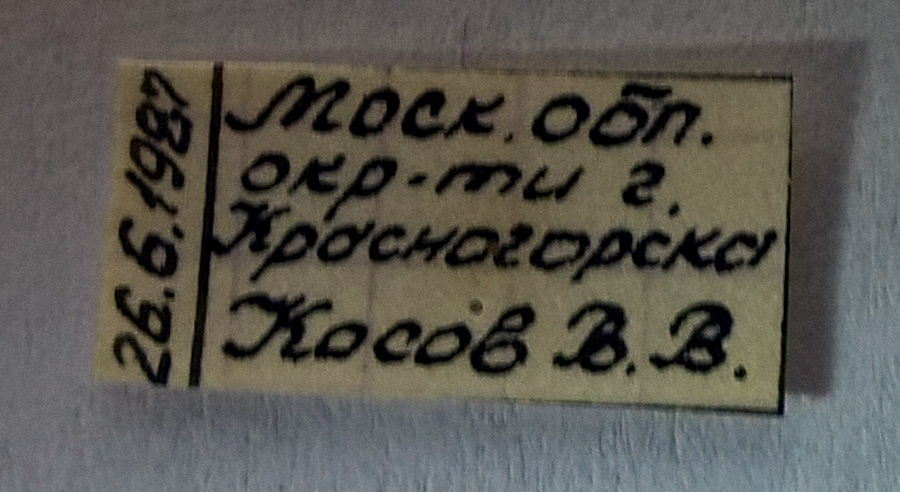 26.6.1987
Моск. обл.
окр-ти г.
Красногорска
Косов В.В.